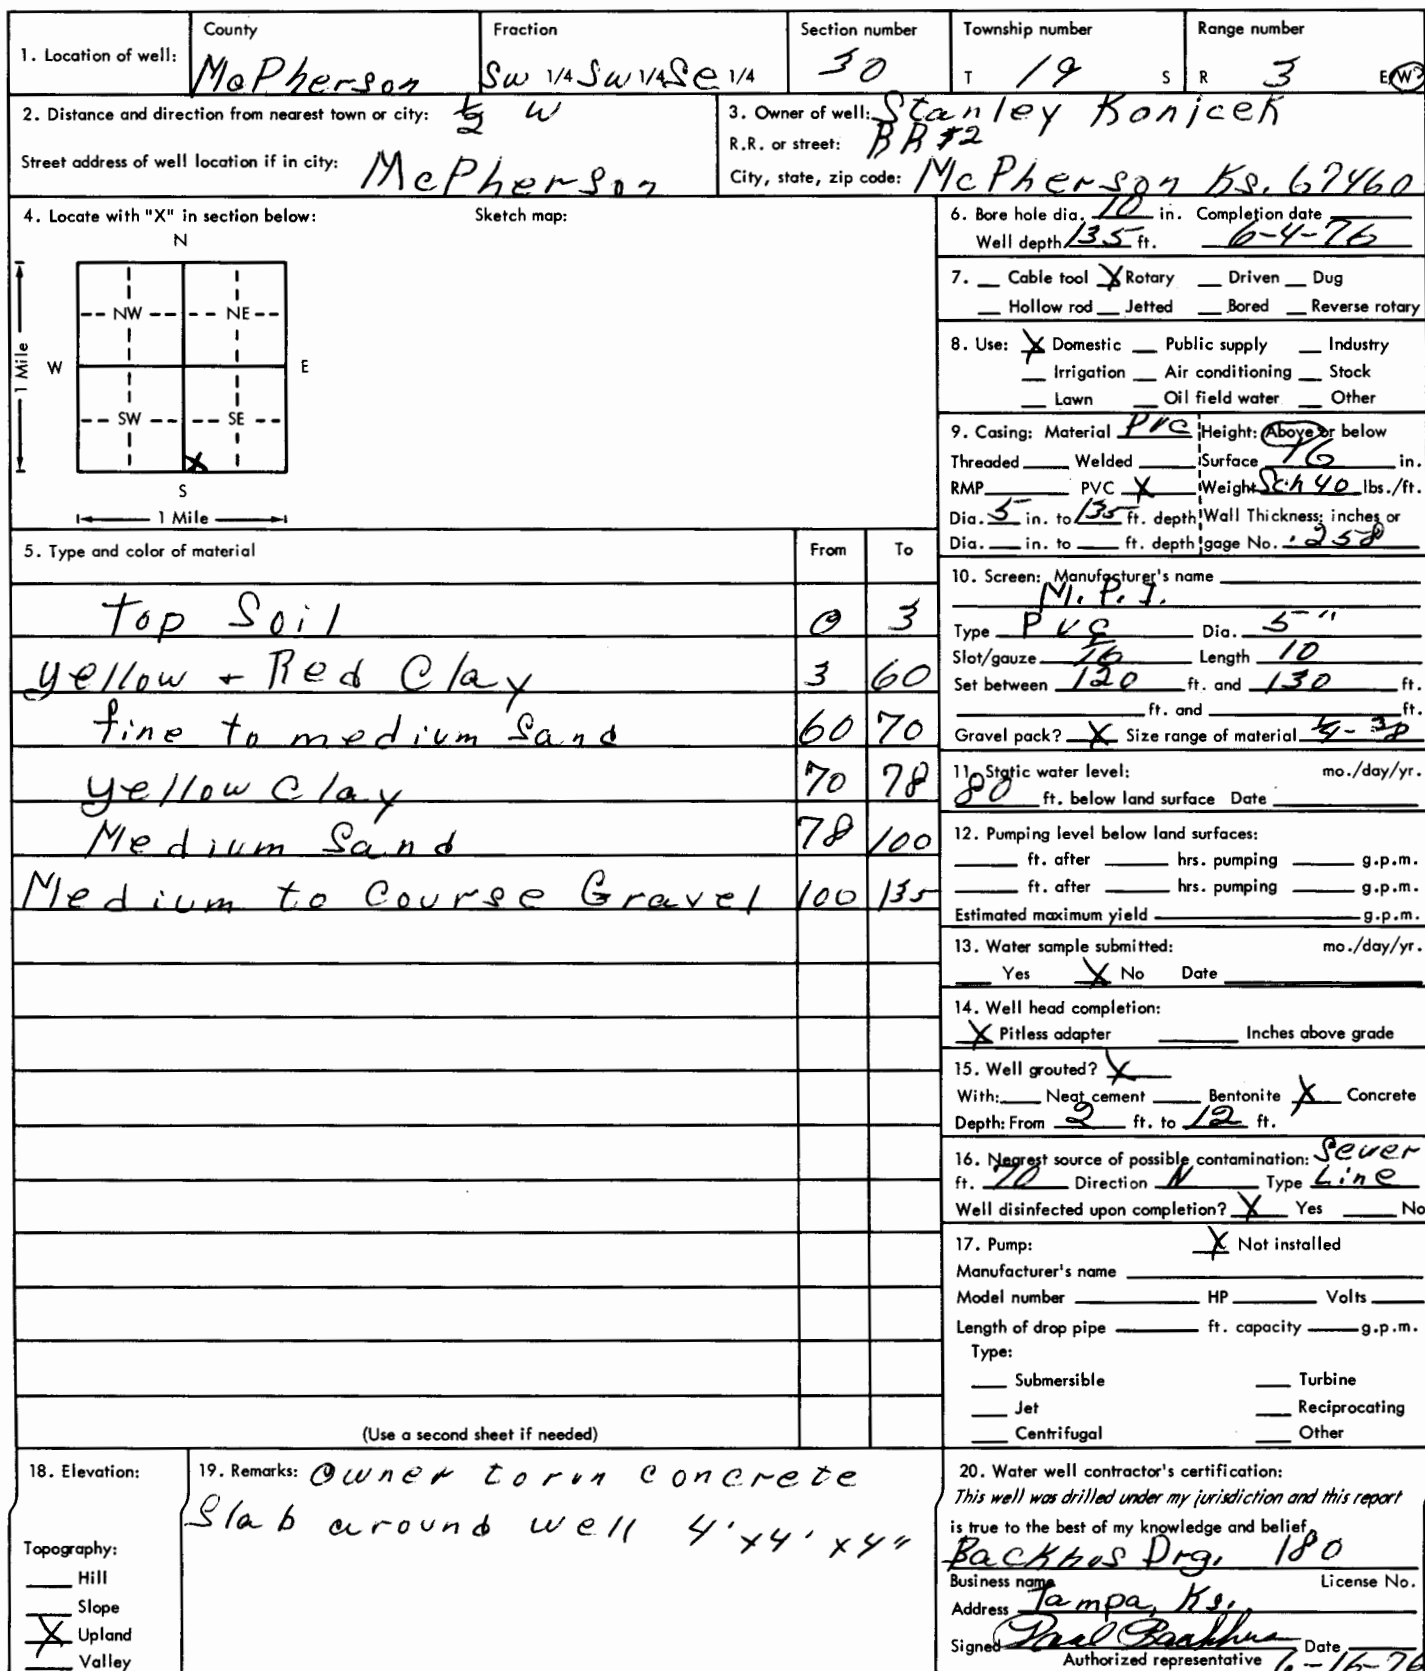 County Fraction Section number Township number Range number
1. Location of well: McPherson Sw 1/4 Sw 1/4 Se 1/4 30 T 19 S R 3 E W
2. Distance and direction from nearest town or city: 1/2 W
Street address of well location if in city: McPherson
3. Owner of well: Stanley Konicek
R.R. or street: RR #2
City, state, zip code: McPherson Ks. 67460
4. Locate with "X" in section below: Sketch map:
N
NW NE
W E
1 Mile
SW SE
X
S
1 Mile
5. Type and color of material From To
Top Soil 0 3
yellow + Red Clay 3 60
fine to medium Sand 60 70
yellow Clay 70 78
Medium Sand 78 100
Medium to Course Gravel 100 135
(Use a second sheet if needed)
6. Bore hole dia. 10 in. Completion date
Well depth 135 ft. 6-4-76
7. Cable tool X Rotary Driven Dug
Hollow rod Jetted Bored Reverse rotary
8. Use: X Domestic Public supply Industry
Irrigation Air conditioning Stock
Lawn Oil field water Other
9. Casing: Material PVC Height: Above or below
Threaded Welded Surface 16 in.
RMP PVC X Weight Sch 40 lbs./ft.
Dia. 5 in. to 135 ft. depth Wall Thickness: inches or
Dia. in. to ft. depth gage No. .258
10. Screen: Manufacturer's name
M.P.I.
Type PVC Dia. 5"
Slot/gauze 16 Length 10
Set between 120 ft. and 130 ft.
ft. and ft.
Gravel pack? X Size range of material 1/4 - 3/8
11. Static water level: mo./day/yr.
80 ft. below land surface Date
12. Pumping level below land surfaces:
ft. after hrs. pumping g.p.m.
ft. after hrs. pumping g.p.m.
Estimated maximum yield g.p.m.
13. Water sample submitted: mo./day/yr.
Yes X No Date
14. Well head completion:
X Pitless adapter Inches above grade
15. Well grouted? X
With: Neat cement Bentonite X Concrete
Depth: From 2 ft. to 12 ft.
16. Nearest source of possible contamination: Sewer
ft. 70 Direction N Type Line
Well disinfected upon completion? X Yes No
17. Pump: X Not installed
Manufacturer's name
Model number HP Volts
Length of drop pipe ft. capacity g.p.m.
Type:
Submersible Turbine
Jet Reciprocating
Centrifugal Other
18. Elevation:
Topography:
Hill
Slope
X Upland
Valley
19. Remarks: Owner to run concrete
Slab around well 4' x4' x4"
20. Water well contractor's certification:
This well was drilled under my jurisdiction and this report
is true to the best of my knowledge and belief.
Backhus Drg. 180
Business name License No.
Address Tampa, Ks.
Signed Paul Backhus Date
Authorized representative 6-16-76